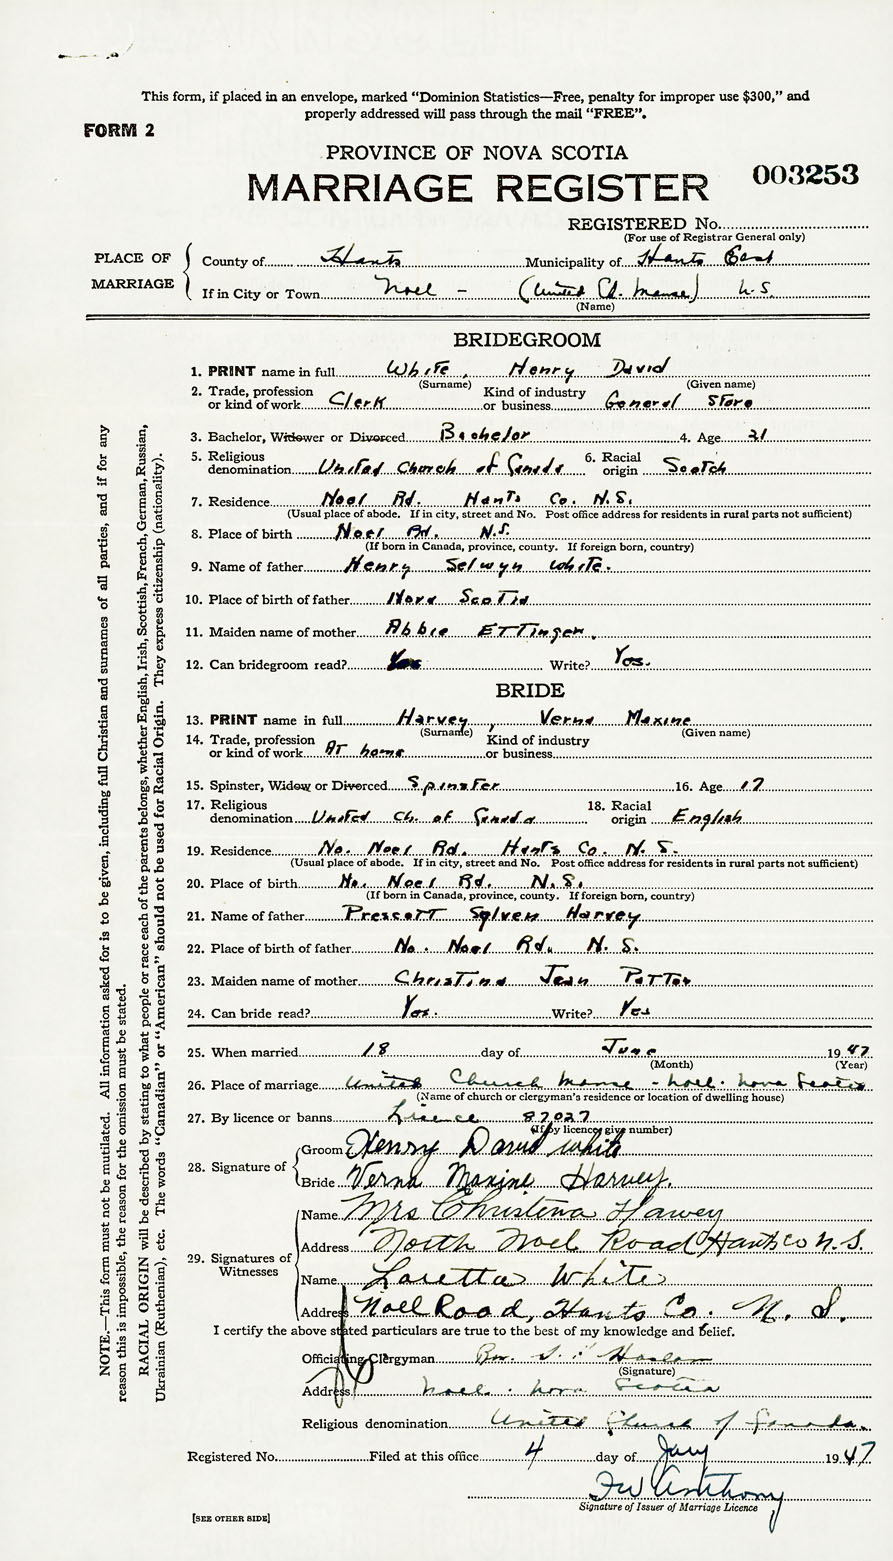 This form, if placed in an envelope, marked “Dominion Statistics—Free, penalty for improper use $300,” and
properly addressed will pass through the mail “FREE”.
FORM 2
PROVINCE OF NOVA SCOTIA
MARRIAGE REGISTER 003253
REGISTERED No.
(For use of Registrar General only)
PLACE OF MARRIAGE
County of Hants Municipality of Hants East
If in City or Town Noel - (United Ch. Manse) N.S.
(Name)
BRIDEGROOM
1. PRINT name in full White, Henry David
(Surname) (Given name)
2. Trade, profession or kind of work Clerk Kind of industry or business General Store
3. Bachelor, Widower or Divorced Bachelor 4. Age 21
5. Religious denomination United Church of Canada 6. Racial origin Scotch
7. Residence Noel Rd. Hants Co. N.S.
(Usual place of abode. If in city, street and No. Post office address for residents in rural parts not sufficient)
8. Place of birth Noel Rd. N.S.
(If born in Canada, province, county. If foreign born, country)
9. Name of father Henry Selwyn White.
10. Place of birth of father Nova Scotia
11. Maiden name of mother Abbie Ettinger.
12. Can bridegroom read? Yes Write? Yes.
BRIDE
13. PRINT name in full Harvey, Verna Maxine
(Surname) (Given name)
14. Trade, profession or kind of work At home Kind of industry or business
15. Spinster, Widow or Divorced Spinster 16. Age 17
17. Religious denomination United Ch. of Canada 18. Racial origin English
19. Residence No. Noel Rd. Hants Co. N.S.
(Usual place of abode. If in city, street and No. Post office address for residents in rural parts not sufficient)
20. Place of birth No. Noel Rd. N.S.
(If born in Canada, province, county. If foreign born, country)
21. Name of father Prescott Sylven Harvey
22. Place of birth of father No. Noel Rd. N.S.
23. Maiden name of mother Christina Jean Potter
24. Can bride read? Yes. Write? Yes
25. When married 18 day of June 1947
(Month) (Year)
26. Place of marriage United Church Manse - Noel. Nova Scotia
(Name of church or clergyman's residence or location of dwelling house)
27. By licence or banns Licence 87027
(If by licence give number)
28. Signature of
Groom Henry David White
Bride Verna Maxine Harvey.
29. Signatures of Witnesses
Name Mrs Christena Harvey
Address North Noel Road Hants Co N.S.
Name Loretta White
Address Noel Road, Hants Co. N.S.
I certify the above stated particulars are true to the best of my knowledge and belief.
Officiating Clergyman Rev.
(Signature)
Address Noel. Nova Scotia
Religious denomination United Church of Canada.
Registered No. Filed at this office 4 day of July 1947
FW Anthony
Signature of Issuer of Marriage Licence
[SEE OTHER SIDE]
NOTE.—This form must not be mutilated. All information asked for is to be given, including full Christian and surnames of all parties, and if for any
reason this is impossible, the reason for the omission must be stated.
RACIAL ORIGIN will be described by stating to what people or race each of the parents belongs, whether English, Irish, Scottish, French, German, Russian,
Ukrainian (Ruthenian), etc. The words “Canadian” or “American” should not be used for Racial Origin. They express citizenship (nationality).